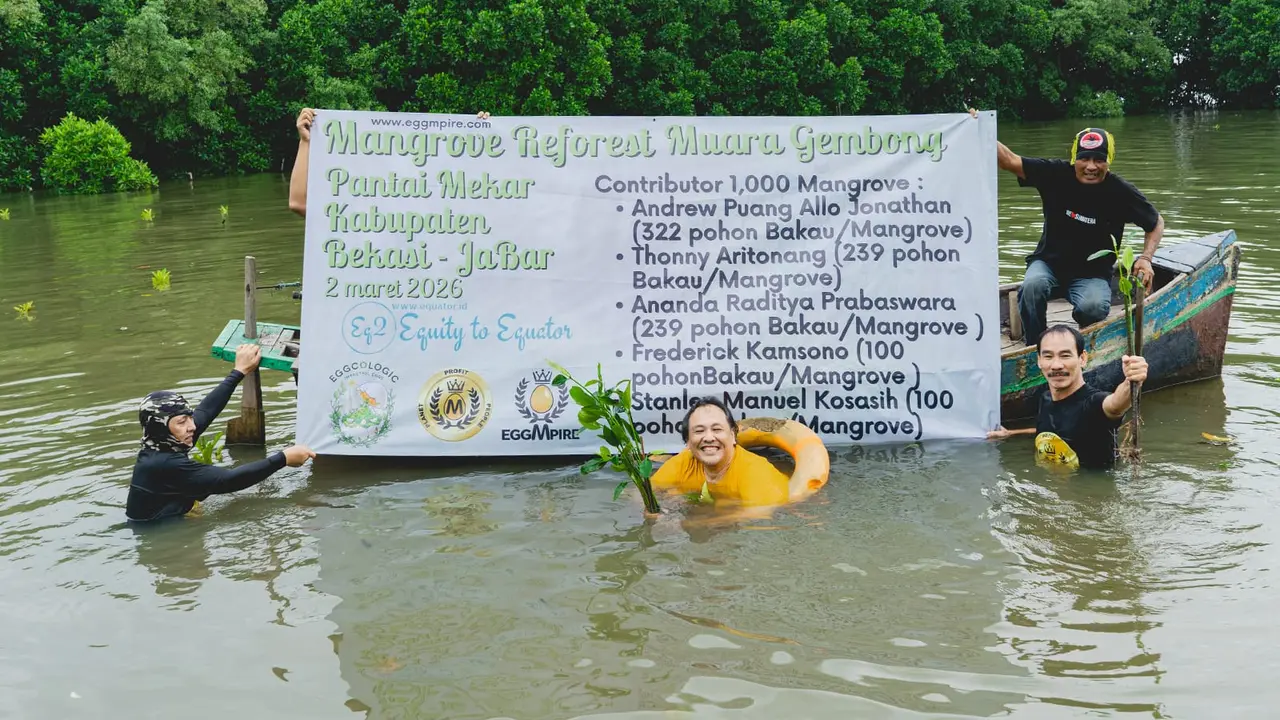 www.eggmpire.com
Mangrove Reforest Muara Gembong
Pantai Mekar
Kabupaten
Bekasi - JaBar
2 maret 2026
www.equator.id
Eq2 Equity to Equator
EGGCOLOGIC
PROFIT
PLANET
PEOPLE
M
EGGMPIRE
Contributor 1,000 Mangrove :
• Andrew Puang Allo Jonathan
(322 pohon Bakau/Mangrove)
• Thonny Aritonang (239 pohon
Bakau/Mangrove)
• Ananda Raditya Prabaswara
(239 pohon Bakau/Mangrove )
• Frederick Kamsono (100
pohonBakau/Mangrove )
Manuel Kosasih (100
/Mangrove)